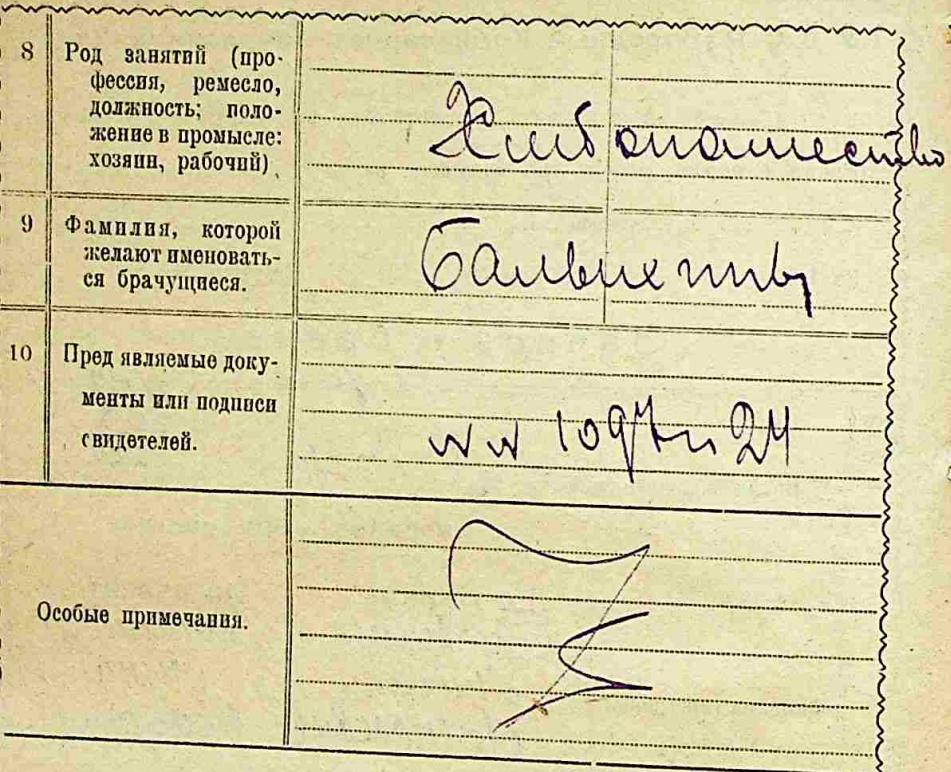 8 Род занятий (про-
фессия, ремесло,
должность; поло-
жение в промысле:
хозяин, рабочий)
Хлебопашество
9 Фамилия, которой
желают именовать-
ся брачущиеся.
10 Пред являемые доку-
менты или подписи
свидетелей.
№№ 1097 и 24
Особые примечания.